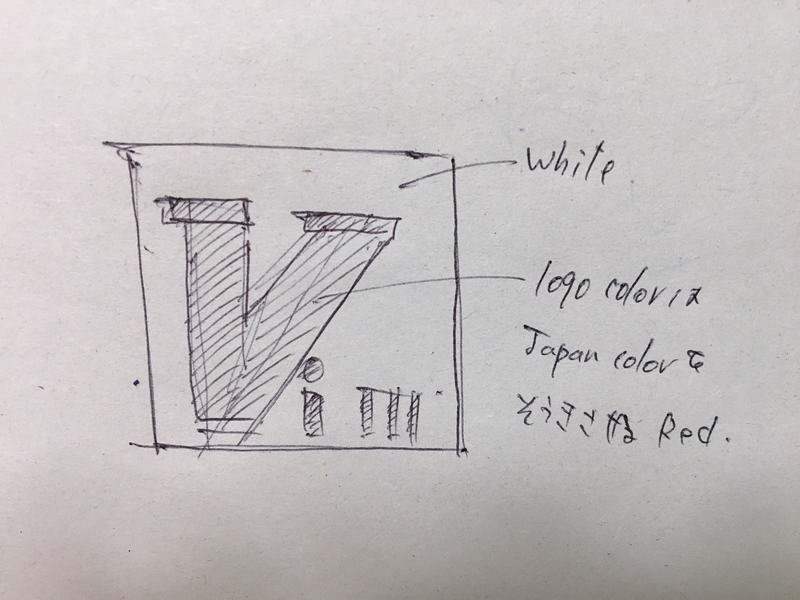 Vim
White
logo color は
Japan color を
そうきさせる Red.